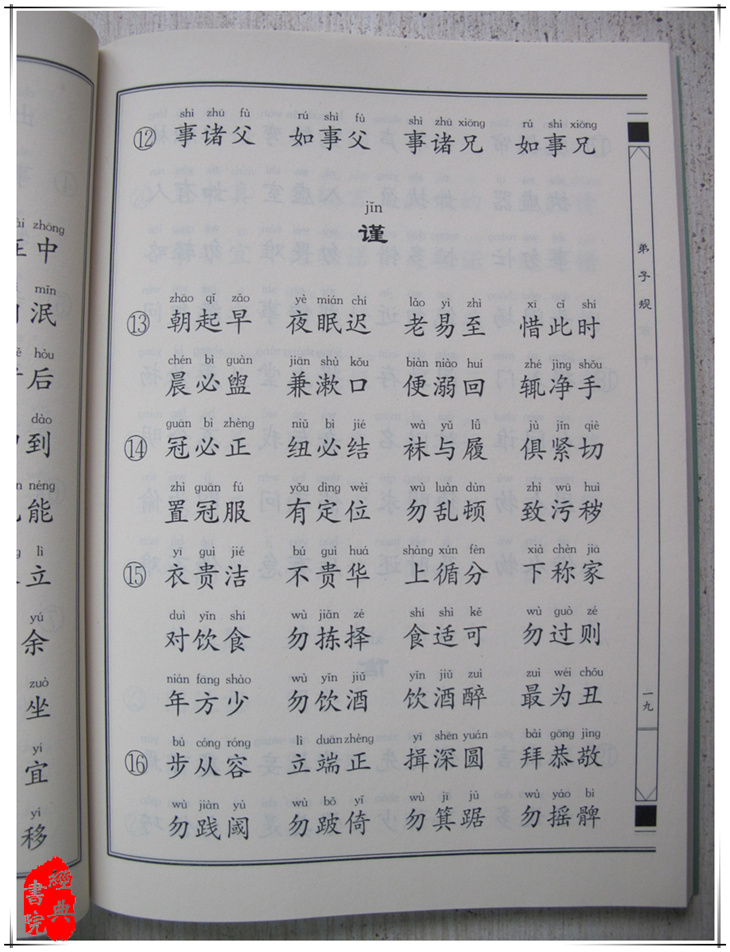 zhōng
中
mín
泯
hòu
后
dào
到
néng
能
lì
立
yú
余
zuò
坐
yí
宜
yí
移
shì zhū fù rú shì fù shì zhū xiōng rú shì xiōng
⑫ 事诸父 如事父 事诸兄 如事兄
jǐn
谨
zhāo qǐ zǎo yè mián chí lǎo yì zhì xī cǐ shí
⑬ 朝起早 夜眠迟 老易至 惜此时
chén bì guàn jiān shù kǒu biàn niào huí zhé jìng shǒu
晨必盥 兼漱口 便溺回 辄净手
guān bì zhèng niǔ bì jié wà yǔ lǚ jù jǐn qiè
⑭ 冠必正 纽必结 袜与履 俱紧切
zhì guān fú yǒu dìng wèi wù luàn dùn zhì wū huì
置冠服 有定位 勿乱顿 致污秽
yī guì jié bú guì huá shàng xún fèn xià chèn jiā
⑮ 衣贵洁 不贵华 上循分 下称家
duì yǐn shí wù jiǎn zé shí shì kě wù guò zé
对饮食 勿拣择 食适可 勿过则
nián fāng shào wù yǐn jiǔ yǐn jiǔ zuì zuì wéi chǒu
年方少 勿饮酒 饮酒醉 最为丑
bù cóng róng lì duān zhèng yī shēn yuán bài gōng jìng
⑯ 步从容 立端正 揖深圆 拜恭敬
wù jiàn yù wù bǒ yǐ wù jī jù wù yáo bì
勿践阈 勿跛倚 勿箕踞 勿摇髀
弟子规
一九
經典
書院